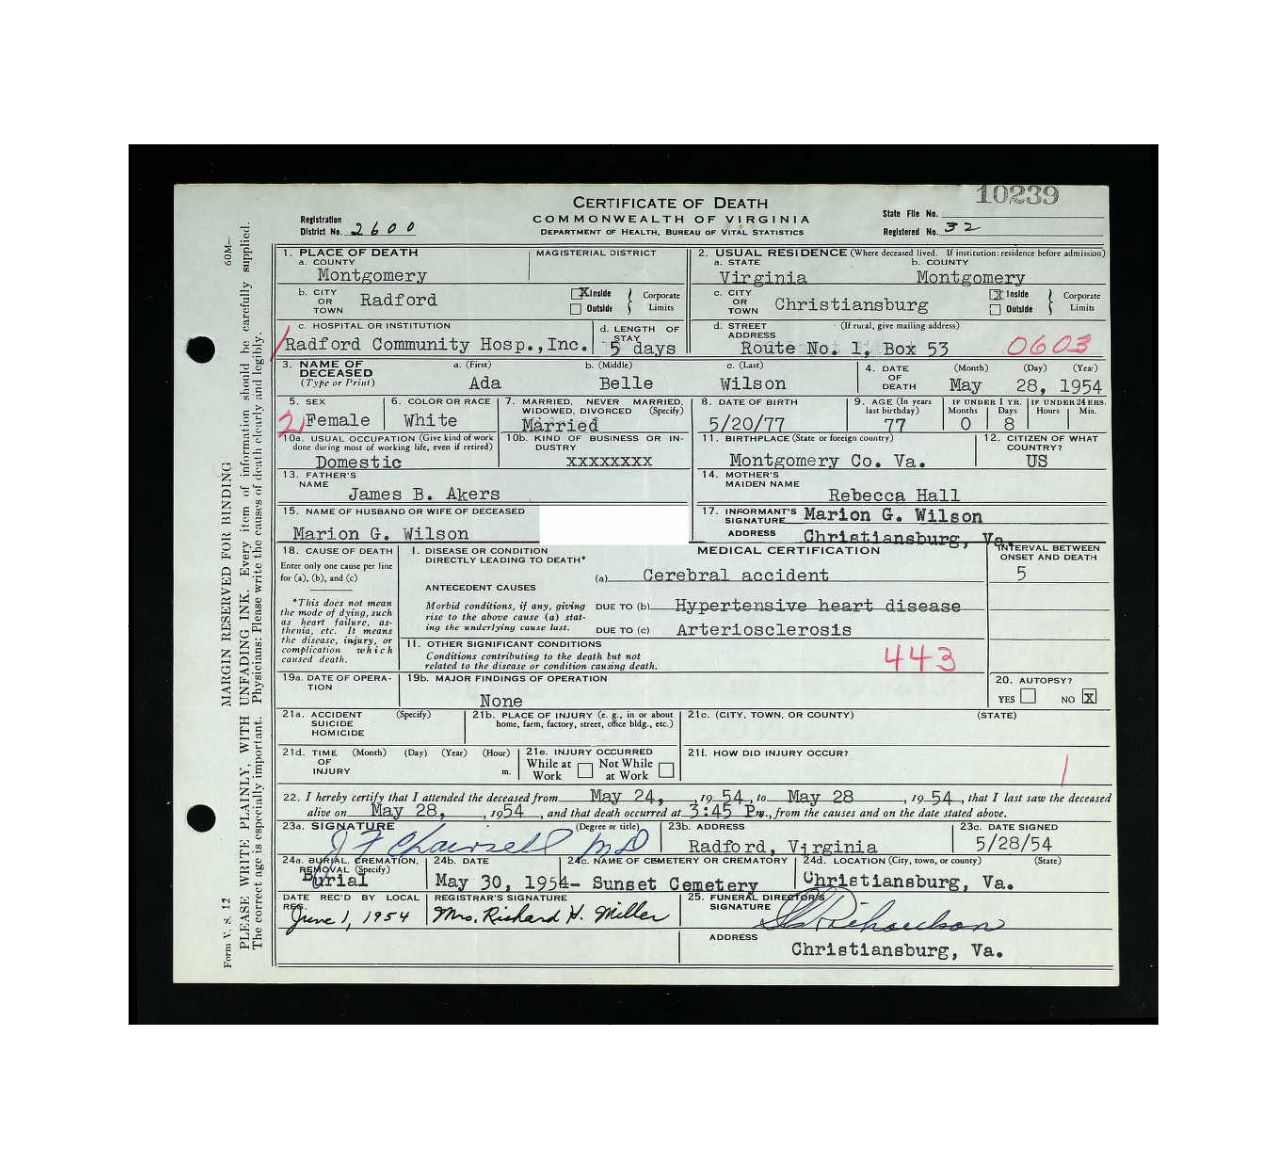 10239
CERTIFICATE OF DEATH
COMMONWEALTH OF VIRGINIA
DEPARTMENT OF HEALTH, BUREAU OF VITAL STATISTICS
Registration District No. 2600
State File No.
Registered No. 32
1. PLACE OF DEATH
a. COUNTY
Montgomery
MAGISTERIAL DISTRICT
2. USUAL RESIDENCE (Where deceased lived. If institution: residence before admission)
a. STATE b. COUNTY
Virginia Montgomery
b. CITY OR TOWN Radford
X Inside Outside Corporate Limits
c. CITY OR TOWN Christiansburg
X Inside Outside Corporate Limits
c. HOSPITAL OR INSTITUTION
Radford Community Hosp.,Inc.
d. LENGTH OF STAY
5 days
d. STREET ADDRESS (If rural, give mailing address)
Route No. 1, Box 53 0603
3. NAME OF DECEASED (Type or Print)
a. (First) b. (Middle) c. (Last)
Ada Belle Wilson
4. DATE OF DEATH (Month) (Day) (Year)
May 28, 1954
5. SEX
2 Female
6. COLOR OR RACE
White
7. MARRIED, NEVER MARRIED, WIDOWED, DIVORCED (Specify)
Married
8. DATE OF BIRTH
5/20/77
9. AGE (In years last birthday)
77
IF UNDER 1 YR. Months Days
0 8
IF UNDER 24 HRS. Hours Min.
10a. USUAL OCCUPATION (Give kind of work done during most of working life, even if retired)
Domestic
10b. KIND OF BUSINESS OR INDUSTRY
xxxxxxxx
11. BIRTHPLACE (State or foreign country)
Montgomery Co. Va.
12. CITIZEN OF WHAT COUNTRY?
US
13. FATHER'S NAME
James B. Akers
14. MOTHER'S MAIDEN NAME
Rebecca Hall
15. NAME OF HUSBAND OR WIFE OF DECEASED
Marion G. Wilson
17. INFORMANT'S SIGNATURE Marion G. Wilson
ADDRESS Christiansburg, Va.
18. CAUSE OF DEATH
Enter only one cause per line for (a), (b), and (c)
*This does not mean the mode of dying, such as heart failure, asthenia, etc. It means the disease, injury, or complication which caused death.
MEDICAL CERTIFICATION
INTERVAL BETWEEN ONSET AND DEATH
I. DISEASE OR CONDITION DIRECTLY LEADING TO DEATH*
(a) Cerebral accident 5
ANTECEDENT CAUSES
Morbid conditions, if any, giving rise to the above cause (a) stating the underlying cause last.
DUE TO (b) Hypertensive heart disease
DUE TO (c) Arteriosclerosis
II. OTHER SIGNIFICANT CONDITIONS
Conditions contributing to the death but not related to the disease or condition causing death.
443
19a. DATE OF OPERATION
19b. MAJOR FINDINGS OF OPERATION
None
20. AUTOPSY?
YES NO X
21a. ACCIDENT SUICIDE HOMICIDE (Specify)
21b. PLACE OF INJURY (e. g., in or about home, farm, factory, street, office bldg., etc.)
21c. (CITY, TOWN, OR COUNTY) (STATE)
21d. TIME OF INJURY (Month) (Day) (Year) (Hour) m.
21e. INJURY OCCURRED
While at Work Not While at Work
21f. HOW DID INJURY OCCUR?
22. I hereby certify that I attended the deceased from May 24, 1954, to May 28, 1954, that I last saw the deceased
alive on May 28, 1954, and that death occurred at 3:45 Pm., from the causes and on the date stated above.
23a. SIGNATURE (Degree or title)
MD
23b. ADDRESS
Radford, Virginia
23c. DATE SIGNED
5/28/54
24a. BURIAL, CREMATION, REMOVAL (Specify)
Burial
24b. DATE
May 30, 1954-
24c. NAME OF CEMETERY OR CREMATORY
Sunset Cemetery
24d. LOCATION (City, town, or county) (State)
Christiansburg, Va.
DATE REC'D BY LOCAL REG.
June 1, 1954
REGISTRAR'S SIGNATURE
Mrs. Richard H. Miller
25. FUNERAL DIRECTOR'S SIGNATURE
Richardson
ADDRESS
Christiansburg, Va.
Form V. S. 12
60M—
MARGIN RESERVED FOR BINDING
PLEASE WRITE PLAINLY, WITH UNFADING INK. Every item of information should be carefully supplied.
The correct age is especially important. Physicians: Please write the causes of death clearly and legibly.